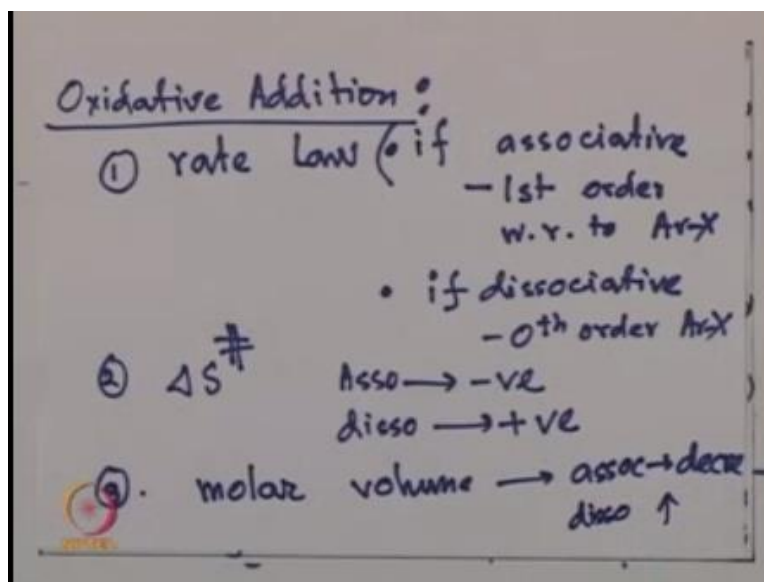 Oxidative Addition:
① rate Law (• if associative
- 1st order
w.r. to Ar-X
• if dissociative
- 0th order Ar-X
② ΔS‡ Asso → -ve
disso → +ve
③. molar volume → assoc → decre
disso ↑